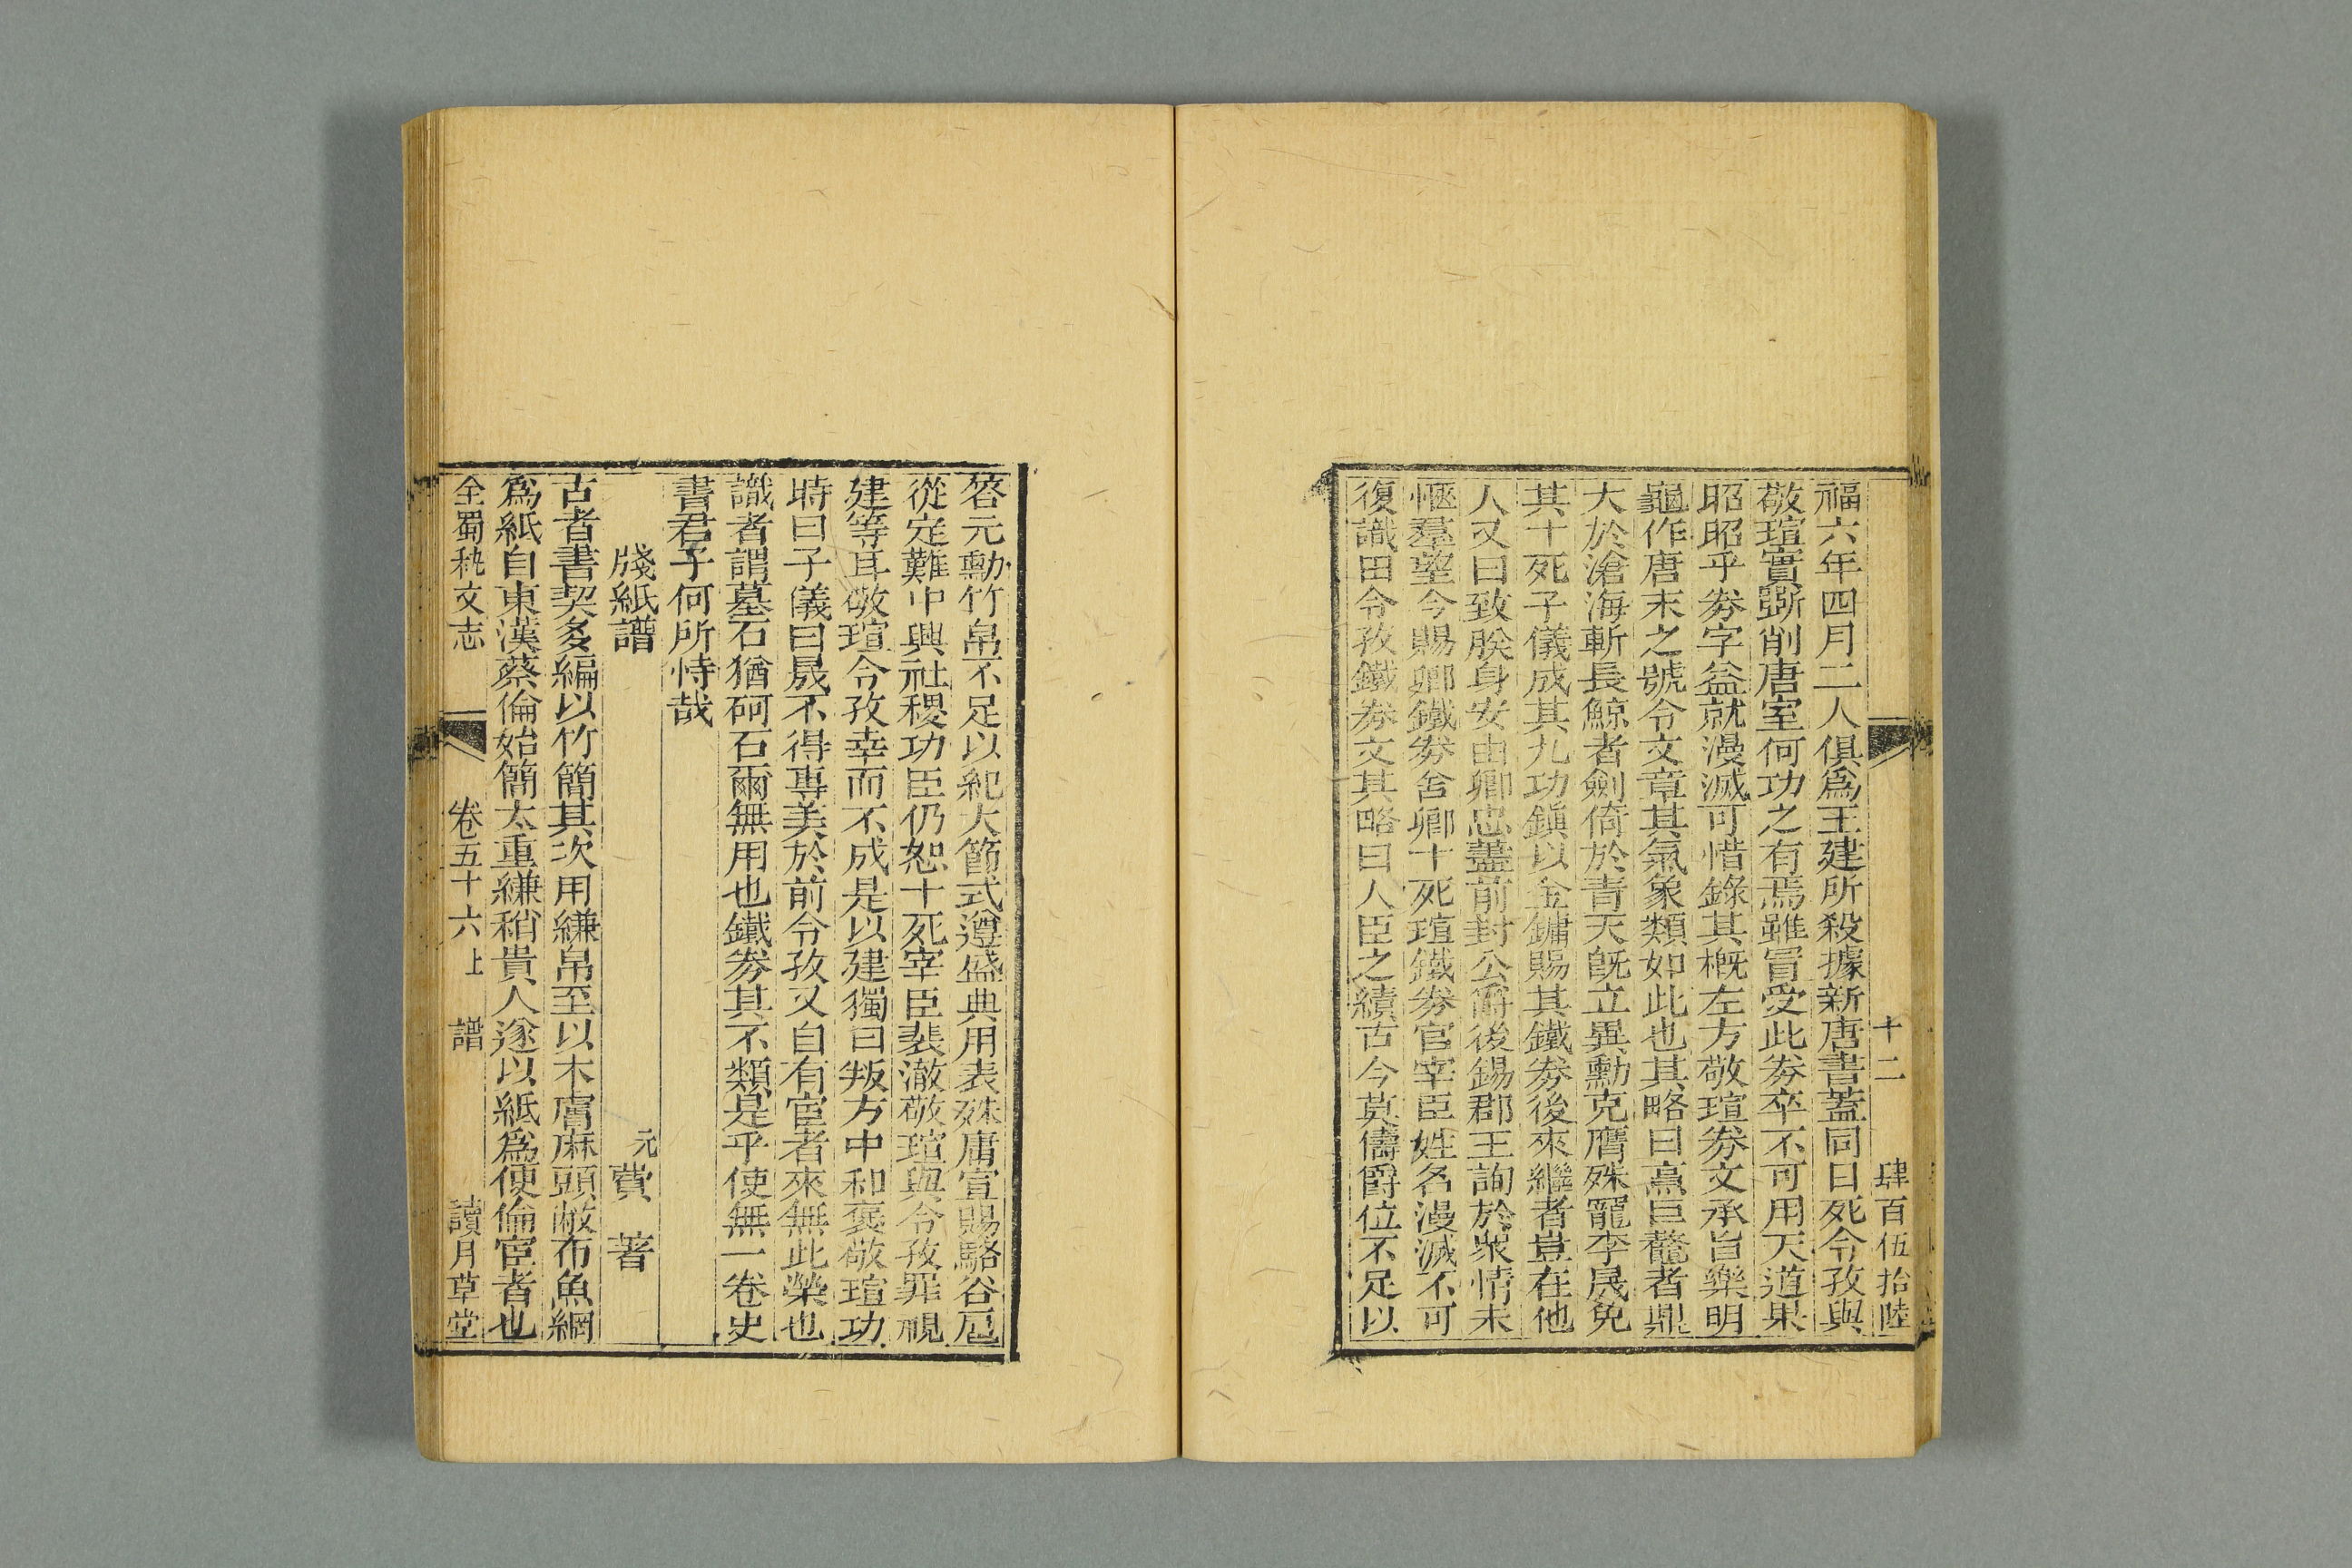 十二　肆百伍拾陸
福六年四月二人俱爲王建所殺據新唐書蓋同日死令孜與
敬瑄實斲削唐室何功之有焉雖冒受此券卒不可用天道果
昭昭乎券字益就漫滅可惜錄其概左方敬瑄券文承旨樂明
龜作唐末之號令文章其氣象類如此也其略曰熹巨鼇者鼎
大於滄海斬長鯨者劍倚於青天旣立異勳克膺殊寵李晟免
其十死子儀成其九功鎭以金鏞賜其鐵券後來繼者豈在他
人又曰致朕身安由卿忠藎前封公爵後錫郡王詢於衆情未
愜羣望今賜卿鐵券舍卿十死瑄鐵券官宰臣姓名漫滅不可
復識田令孜鐵券文其略曰人臣之績古今莫儔爵位不足以
答元勳竹帛不足以紀大節式遵盛典用表殊庸宣賜駱谷扈
從定難中興社稷功臣仍恕十死宰臣裴澈敬瑄與令孜罪視
建等耳敬瑄令孜幸而不成是以建獨曰叛方中和褒敬瑄功
時曰子儀曰晟不得專美於前令孜又自有宦者來無此榮也
識者謂墓石猶砢石爾無用也鐵券其不類是乎使無一卷史
書君子何所恃哉
牋紙譜　元費　著
古者書契多編以竹簡其次用縑帛至以木膚麻頭敝布魚網
爲紙自東漢蔡倫始簡太重縑稍貴人遂以紙爲便倫宦者也
全蜀秇文志　卷五十六上　譜　讀月草堂